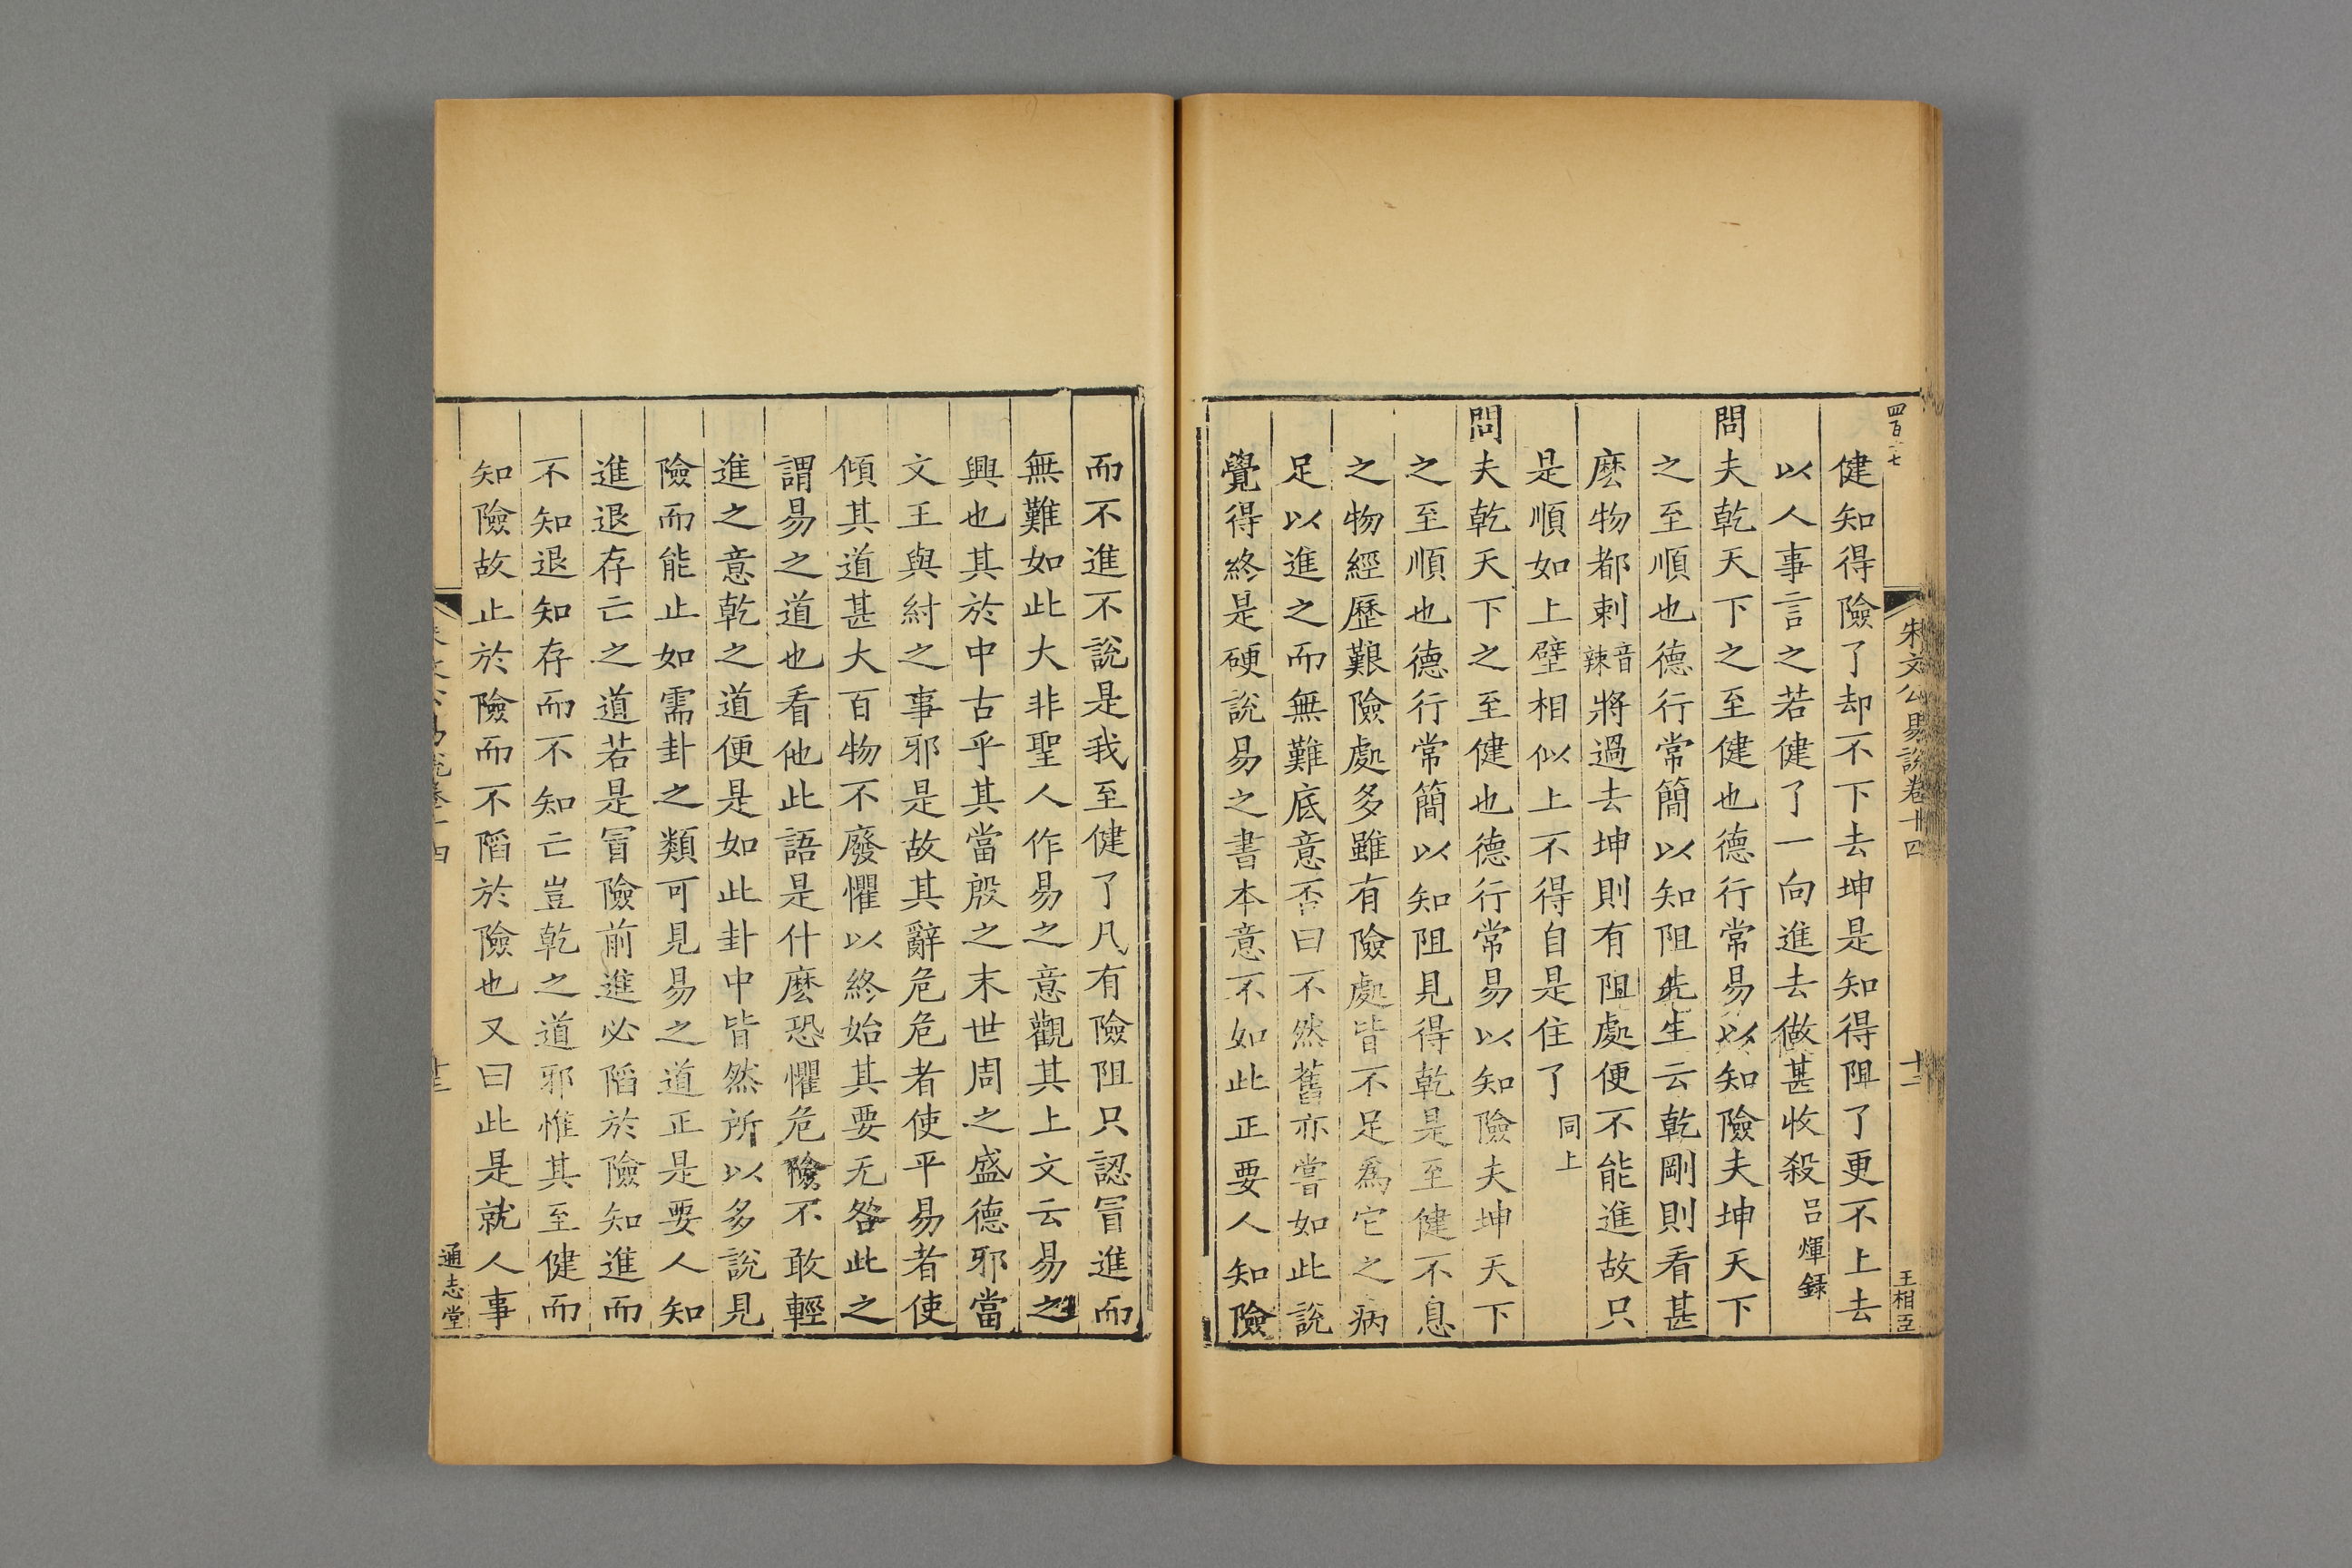 四百七
朱文公易說卷十四
十二
王相臣
健知得險了却不下去坤是知得阻了更不上去
以人事言之若健了一向進去做甚收殺呂煇録
問夫乾天下之至健也德行常易以知險夫坤天下
之至順也德行常簡以知阻先生云乾剛則看甚
麽物都剌音辣將過去坤則有阻處便不能進故只
是順如上壁相似上不得自是住了同上
問夫乾天下之至健也德行常易以知險夫坤天下
之至順也德行常簡以知阻見得乾是至健不息
之物經歷艱險處多雖有險處皆不足爲它之病
足以進之而無難底意否曰不然舊亦嘗如此說
覺得終是硬說易之書本意不如此正要人知險
而不進不說是我至健了凡有險阻只認冐進而
無難如此大非聖人作易之意觀其上文云易之
興也其於中古乎其當殷之末世周之盛德邪當
文王與紂之事邪是故其辭危危者使平易者使
傾其道甚大百物不廢懼以終始其要无咎此之
謂易之道也看他此語是什麽恐懼危險不敢輕
進之意乾之道便是如此卦中皆然所以多說見
險而能止如需卦之類可見易之道正是要人知
進退存亡之道若是冐險前進必陷於險知進而
不知退知存而不知亡豈乾之道邪惟其至健而
知險故止於險而不陷於險也又曰此是就人事
通志堂